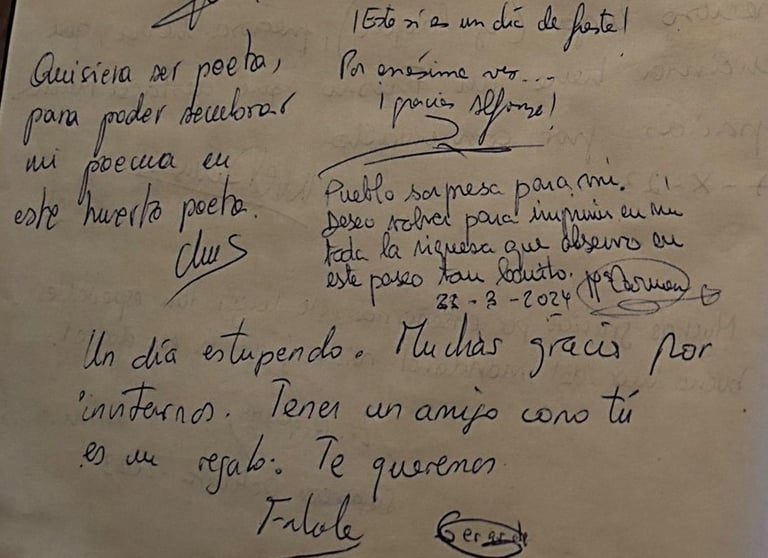 ¡Esto sí es un día de fiesta!
Por enésima vez...
¡gracias Alfonso!
Quisiera ser poeta,
para poder sembrar
mi poema en
este huerto poeta.
Chus
Pueblo sorpresa para mi.
Deseo volver para imprimir en mi
toda la riquesa que observo en
este paseo tan bonito. Mª Carmen
22-3-2024
Un día estupendo. Muchas gracis por
invitarnos. Tener un amigo como tú
es un regalo. Te queremos
Gerardo